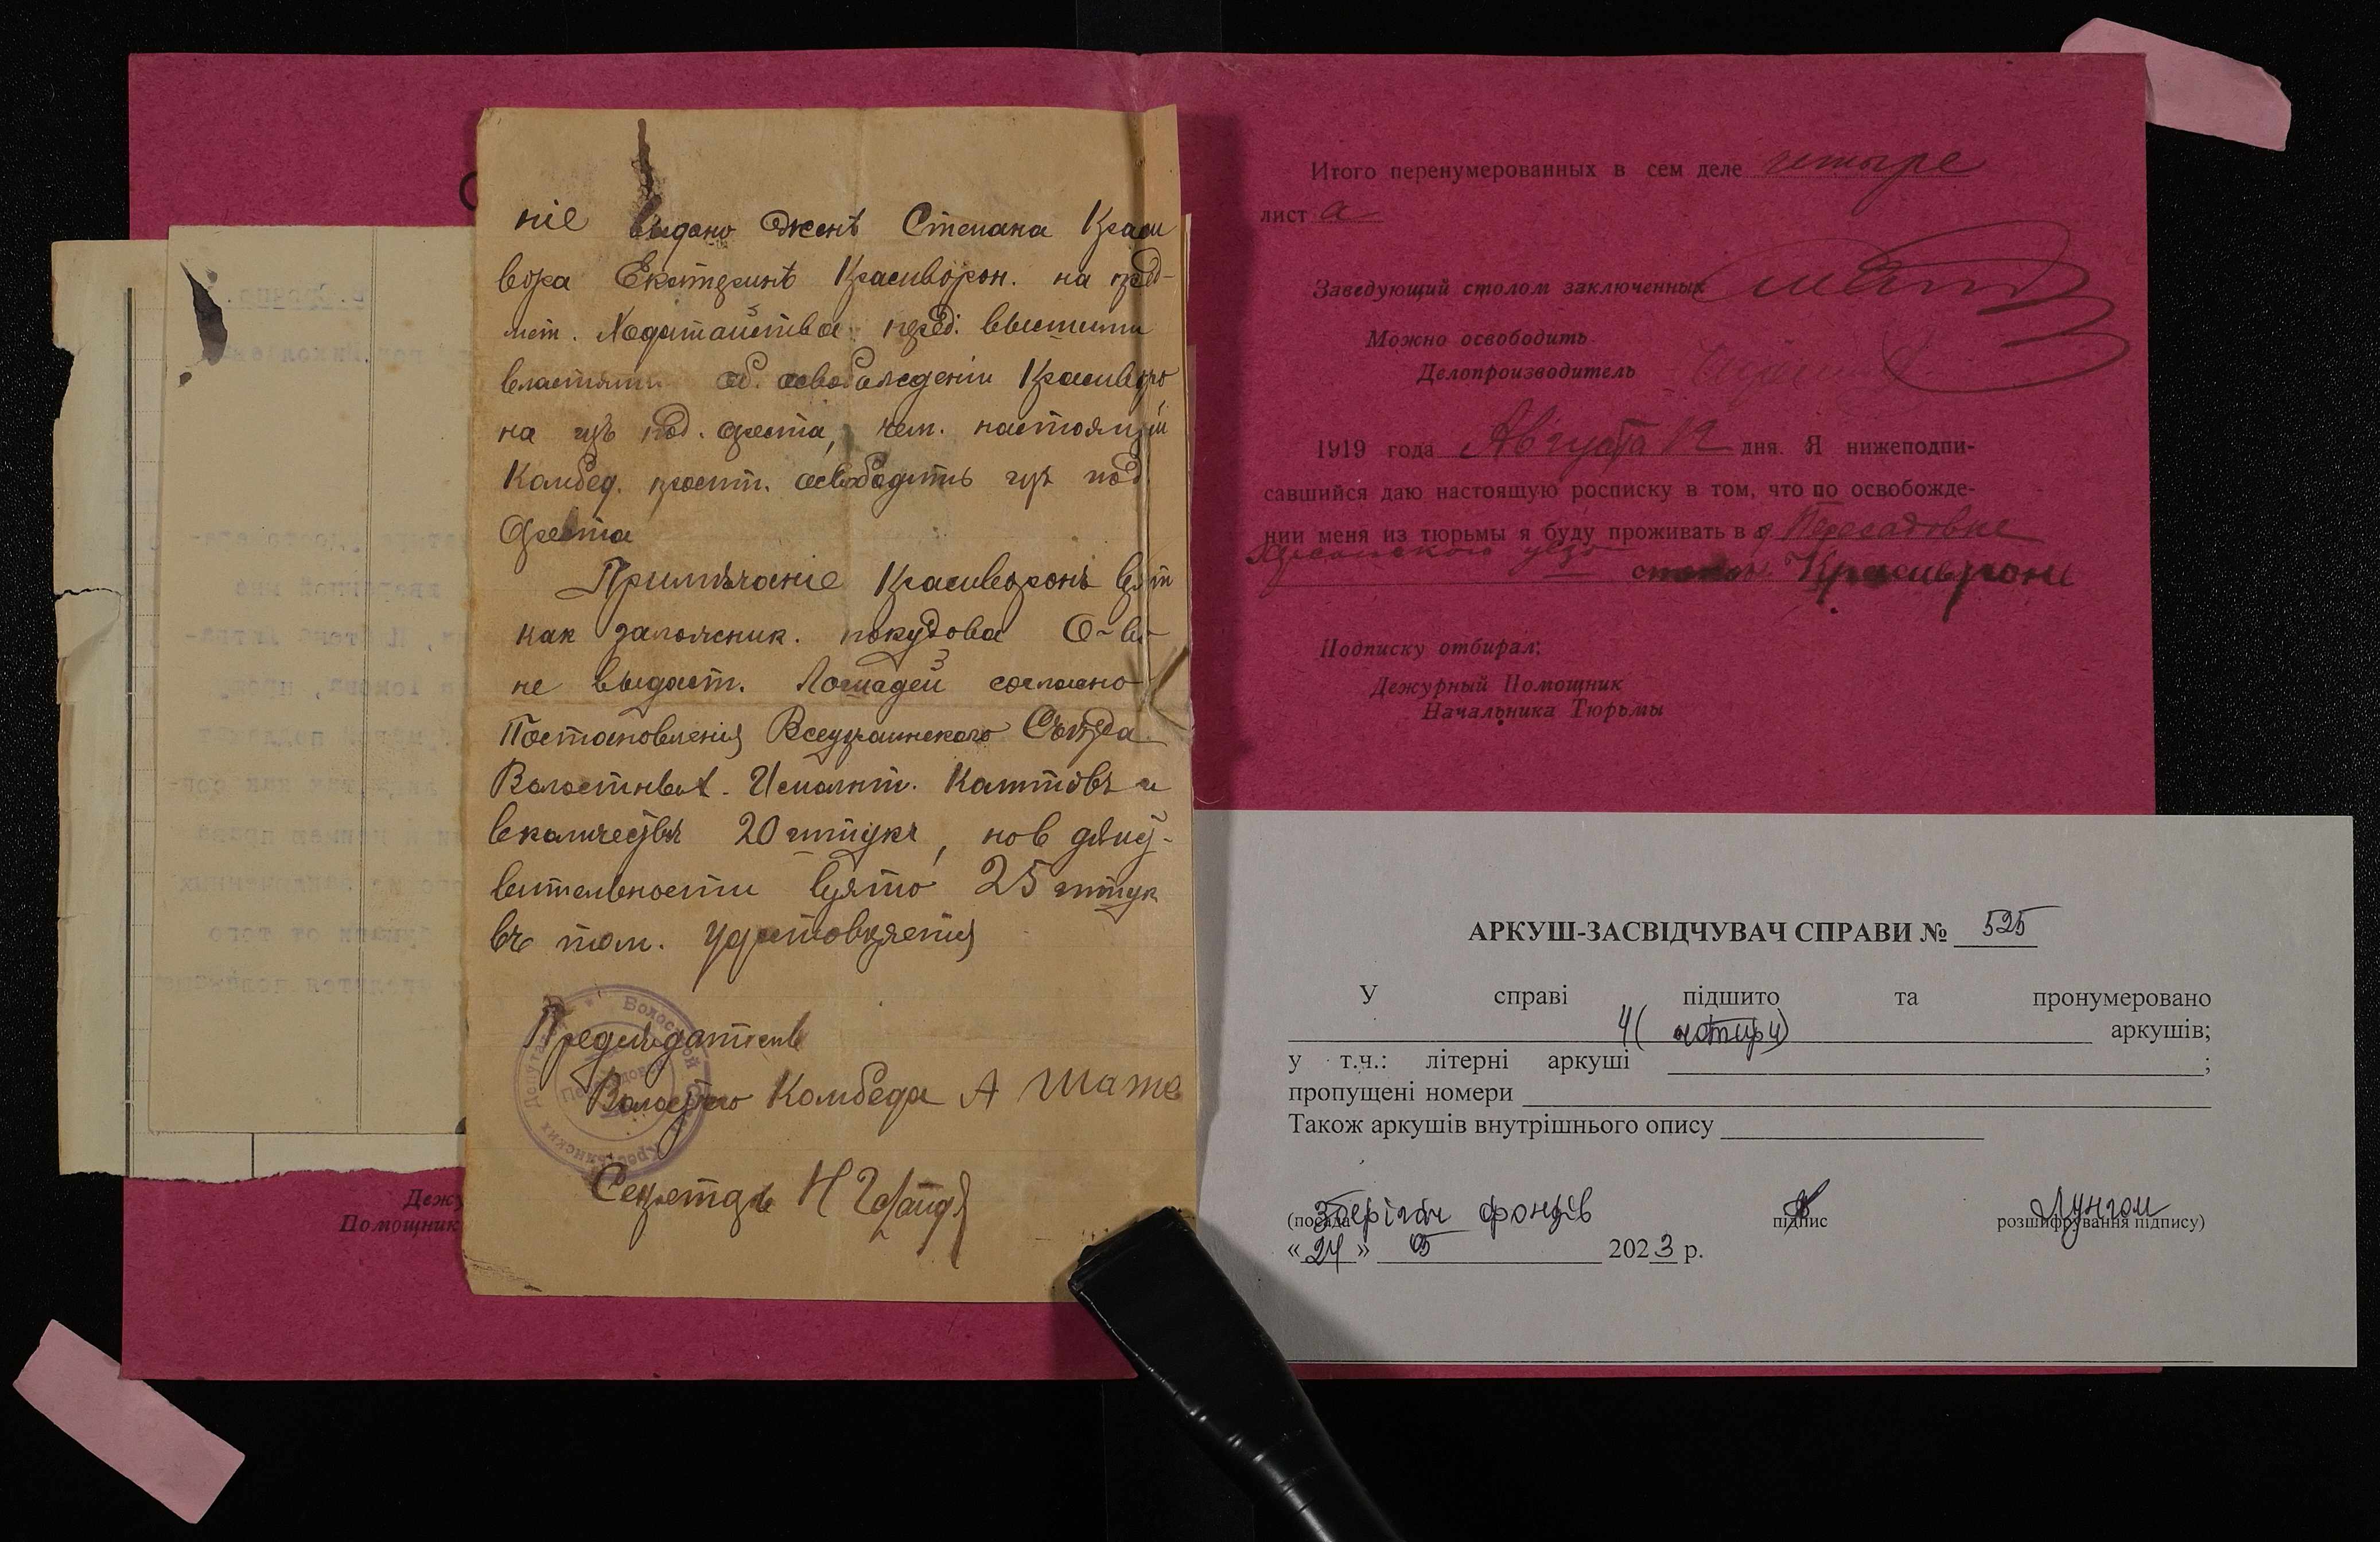 ніе выдано Женѣ Степана Краси
вора Екатеринѣ Красиворон. на пред-
мет. Ходатайства перед. высшими
властями об. освобождении Красиворо
на изъ под. ареста, чем. настоящій
Комбед. просит. освободить изъ под.
Ареста
Примѣчаніе Красиворонъ взят
как заложник. покудова О-во
не выдаст. Лошадей согласно
Постановленія Всеукраинского Съѣзда
Волостных. Исполнит. Комітов и
вколичествѣ 20 штукъ, нов дѣйс-
вительности взято 25 штук
въ том. удостовѣряется
Председатель
Волостного Комбеда А Шате
Секретарь Н
Деж
Помощник
Итого перенумерованных в сем деле четыре
лист а
Заведующий столом заключенных
Можно освободить
Делопроизводитель
1919 года Августа 12 дня. Я нижеподпи-
савшийся даю настоящую росписку в том, что по освобожде-
нии меня из тюрьмы я буду проживать в д Пересадовке
Херсонского уезд
степан Красиворон
Подписку отбирал:
Дежурный Помощник
Начальника Тюрьмы
АРКУШ-ЗАСВІДЧУВАЧ СПРАВИ № 525
У справі підшито та пронумеровано
4 (чотири) аркушів;
у т.ч.: літерні аркуші ;
пропущені номери
Також аркушів внутрішнього опису
Зберігач фондів
(посада підпис розшифрування підпису)
« 24 » 05 2023 р.